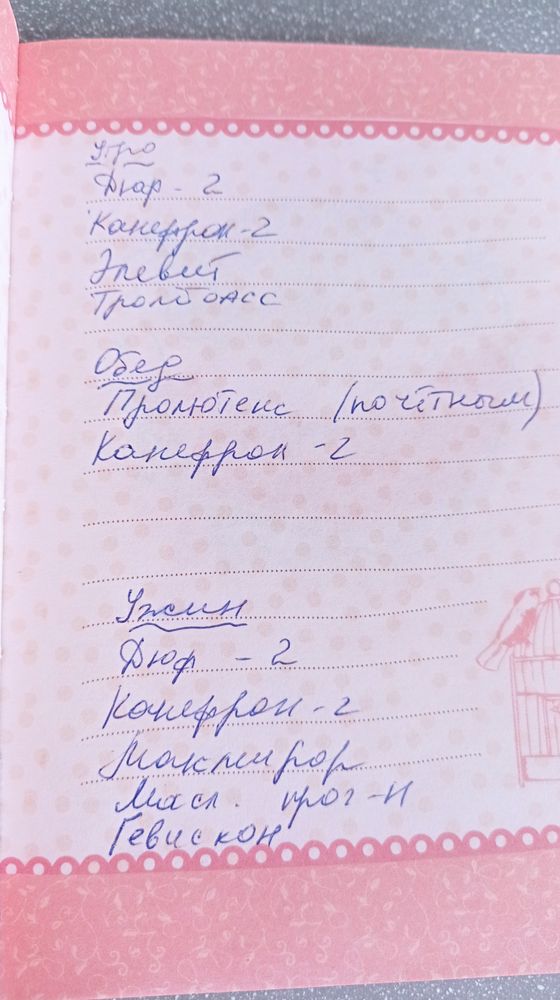 Утро
Дюф - 2
Канеффрон-2
Элевит
Тромбоасс
Обед
Пролютекс (по чётным)
Канеффрон - 2
Ужин
Дюф - 2
Канеффрон - 2
Мактифор
Масл. прог-н
Гевискон